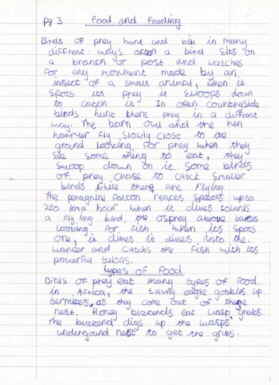 pg 3 Food and Feeding
Birds of prey hunt and eat in many
different ways often a bird sits on
a branch or post and watches
for any movment made by an
insect or a small animal, when it
spots its prey it swoops down
to catch it. In open countryside
birds hunt there prey in a diffrent
way. The barn owl and the hen
harrier fly slowly close to the
ground looking for prey when they
see some thing to eat, they
swoop down on it. Some birds
of prey chase to catch smaller
birds while there are flying
The peregrine falcon reaches speeds up to
280 km/hour when it dives towards
a flying bird, the osprey
looking for fish when its spots
one, it dives it dives into the
water and catchs the fish with its
powerful talons.
Types of Food
Birds of prey eat many types of food
in Africa, the tawny eagle gobbles up
termites as they come out of there
nest. Honey buzzards eat wasp grubs
the buzzard digs up the wasps
underground nest to get the grubs.